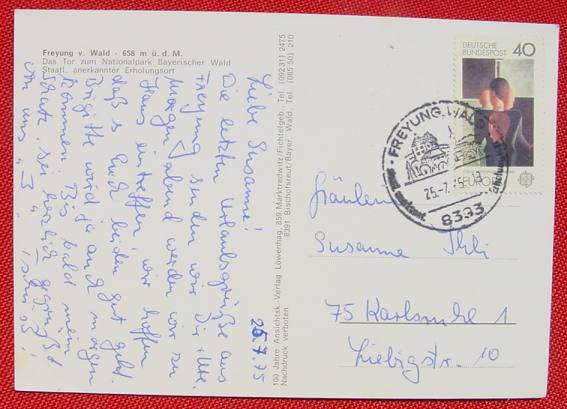 Freyung v. Wald - 658 m ü. d. M.
Das Tor zum Nationalpark Bayerischer Wald
Staatl. anerkannter Erholungsort
25.7.75
Liebe Susanne!
Die letzten Urlaubsgrüße aus
Freyung senden wir Dir
Morgen abend werden wir zu
Haus eintreffen, wir hoffen
daß es Euch beiden gut geht.
Brigitte wird ja auch morgen
kommen. Bis bald mein
Schatz, sei herzlich gegrüßt
von uns
100 Jahre Ansichtsk.-Verlag Löwenhag, 859 Marktredwitz/Fichtelgeb. Tel. (09231) 2475
8391 Bischofsreut/Bayer. Wald, Tel. (08550) 210
Nachdruck verboten
DEUTSCHE
BUNDESPOST
40
EUROPA
FREYUNG, WALD
25.-7.75
8393
Fräulein
Susanne
75 Karlsruhe 1
Liebigstr. 10